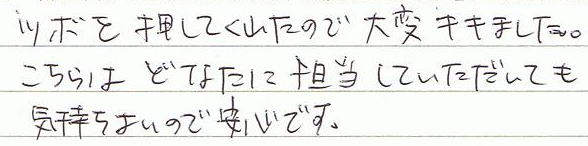 ツボを押してくれたので大変キキました。
こちらは どなたに担当していただいても
気持ちよいので安心です。